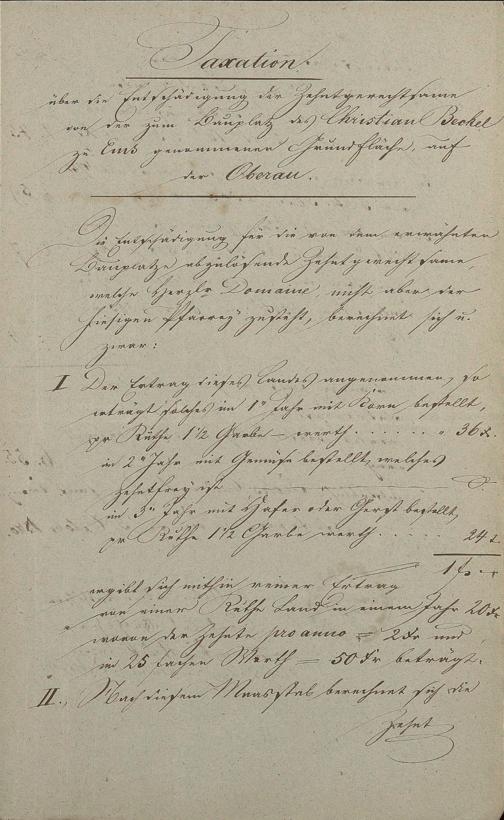 Taxation.
über die Entschädigung der Zehntgerechtsame
von der zum Bauplatz des Christian Beckel
zu Ems genommenen Grundfläche, auf
der Oberau.
Die Entschädigung für die von dem erwähnten
Bauplatze abzulösende Zehntgerechtsame,
welche Herzlr Domaine, nicht aber der
hiesigen Pfarrey zusteht, berechnet sich u.
zwar:
I Der Ertrag dieses Landes angenommen, so
erträgt solches im 1n Jahr mit Korn bestellt,
pr Ruthe 1 1/2 Garbe - werth . . . . . . . " 36 x.
im 2n Jahr mit Gemüse bestellt, welches
zehntfrey ist
im 3n Jahr mit Hafer oder Gerst bestellt,
pr Ruthe 1 1/2 Garbe werth . . . . . 24 x
1 f. -
ergibt sich mithin reiner Ertrag
von einer Ruthe Land in einem Jahr 20 Xr
wovon der Zehnte pro anno = 2 Xr und
im 25 fachen Werth = 50 Xr beträgt.
II., Nach diesem Maasstab berechnet sich die
Zehnt